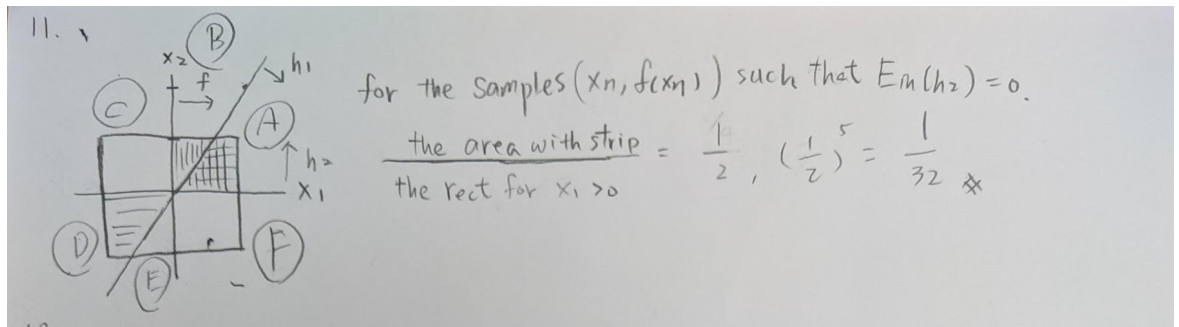 11.
B
x2
f
h1
C
A
h2
x1
D
E
F
for the samples (xn, f(xn)) such that Ein(h2) = 0.
the area with strip / the rect for x1 > 0 = 1/2, (1/2)^5 = 1/32 ※